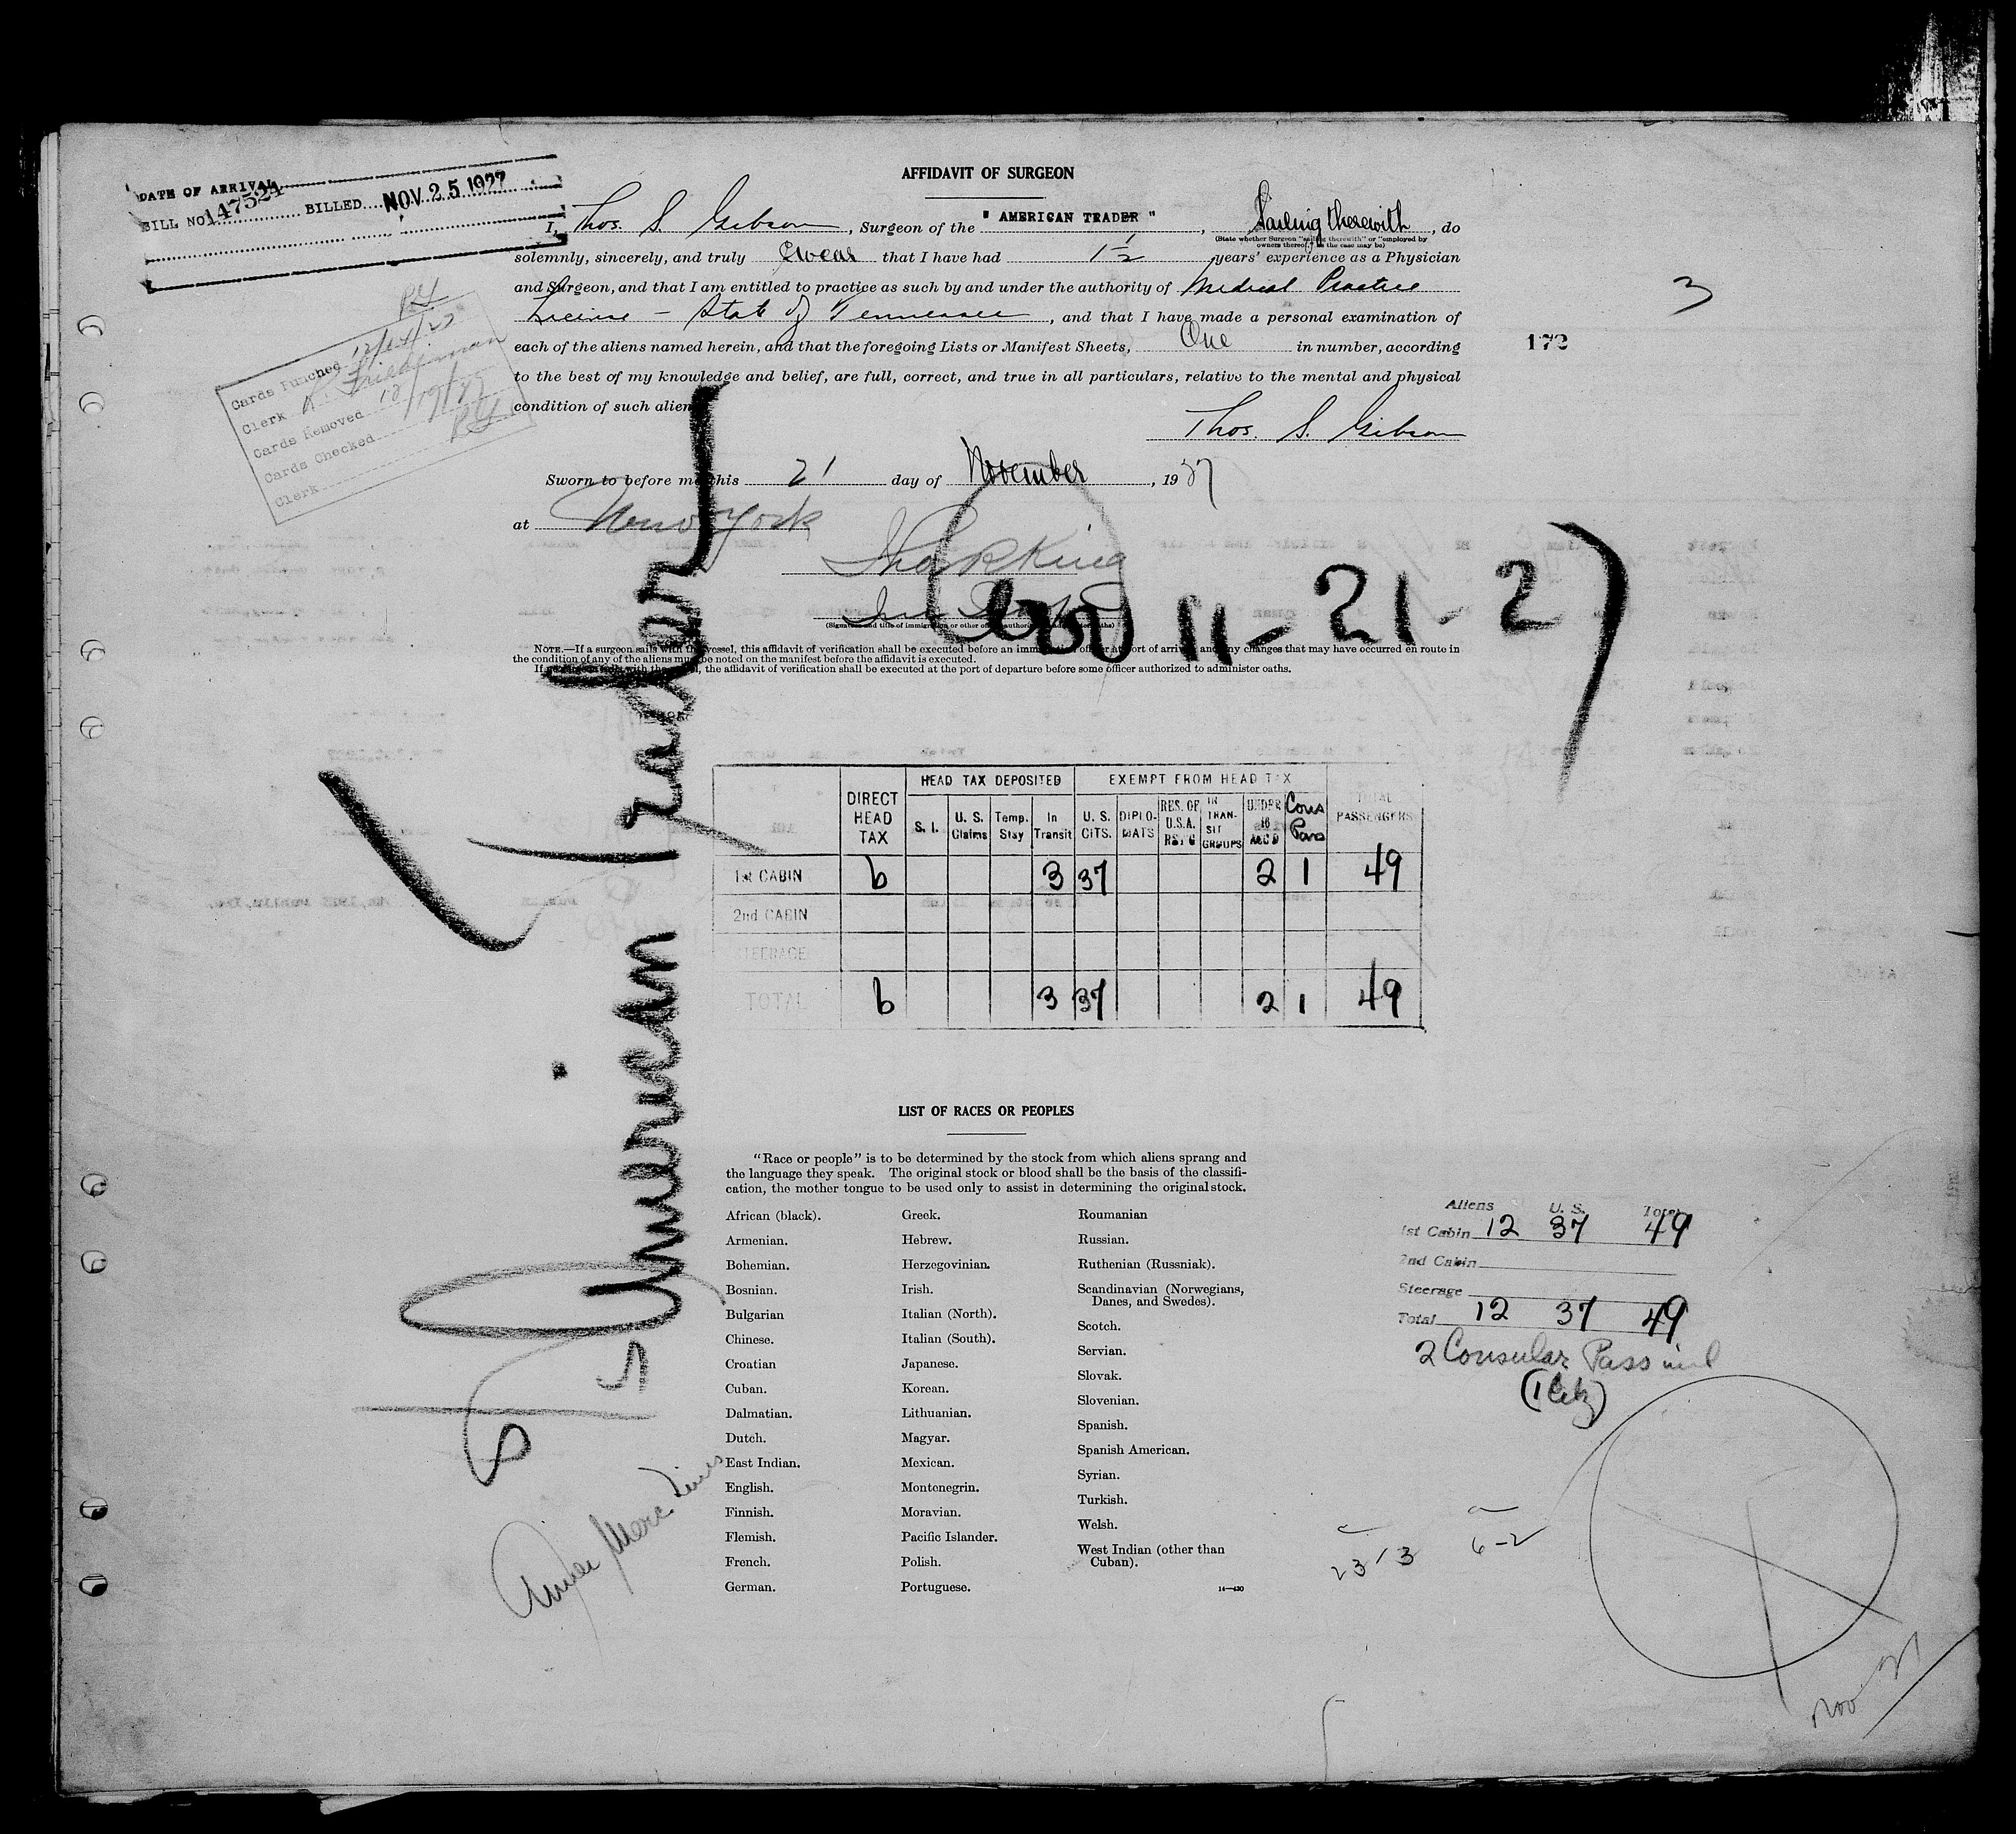 DATE OF ARRIVAL
BILL NO. 147524 BILLED NOV 25 1927
AFFIDAVIT OF SURGEON
I, Thos. S. Gibson, Surgeon of the " AMERICAN TRADER ", Sailing therewith, do
(State whether Surgeon "sailing therewith" or "employed by
owners thereof," as the case may be)
solemnly, sincerely, and truly swear that I have had 1½ years' experience as a Physician
and Surgeon, and that I am entitled to practice as such by and under the authority of Medical Practice
License – State of Tennessee, and that I have made a personal examination of
each of the aliens named herein, and that the foregoing Lists or Manifest Sheets, One in number, according
to the best of my knowledge and belief, are full, correct, and true in all particulars, relative to the mental and physical
condition of such alien
Thos. S. Gibson
3
172
Cards Punched
Clerk
Cards Removed
Cards Checked
Clerk
Sworn to before me this 21 day of November, 1927
at New York
Thos R King
(Signature and title of immigration or other officer authorized to administer oaths)
Nov 11-21-27
NOTE.—If a surgeon sails with the vessel, this affidavit of verification shall be executed before an immigration officer at port of arrival, and any changes that may have occurred en route in
the condition of any of the aliens must be noted on the manifest before the affidavit is executed.
with the vessel, the affidavit of verification shall be executed at the port of departure before some officer authorized to administer oaths.
American Trader
HEAD TAX DEPOSITED EXEMPT FROM HEAD TAX
DIRECT HEAD TAX S. I. U. S. Claims Temp. Stay In Transit U. S. CITS. DIPLO-MATS RES. OF U.S.A. RET'G IN TRAN-SIT GROUPS UNDER 16 ACC'D Cons Pass TOTAL PASSENGERS
1st CABIN 6 3 37 2 1 49
2nd CABIN
STEERAGE
TOTAL 6 3 37 2 1 49
LIST OF RACES OR PEOPLES
"Race or people" is to be determined by the stock from which aliens sprang and
the language they speak. The original stock or blood shall be the basis of the classifi-
cation, the mother tongue to be used only to assist in determining the original stock.
African (black).
Armenian.
Bohemian.
Bosnian.
Bulgarian
Chinese.
Croatian
Cuban.
Dalmatian.
Dutch.
East Indian.
English.
Finnish.
Flemish.
French.
German.
Greek.
Hebrew.
Herzegovinian.
Irish.
Italian (North).
Italian (South).
Japanese.
Korean.
Lithuanian.
Magyar.
Mexican.
Montenegrin.
Moravian.
Pacific Islander.
Polish.
Portuguese.
Roumanian
Russian.
Ruthenian (Russniak).
Scandinavian (Norwegians,
Danes, and Swedes).
Scotch.
Servian.
Slovak.
Slovenian.
Spanish.
Spanish American.
Syrian.
Turkish.
Welsh.
West Indian (other than
Cuban).
14—430
Aliens U. S. Total
1st Cabin 12 37 49
2nd Cabin
Steerage
Total 12 37 49
2 Consular Pass incl
(1 Citz)
Amer Merc Lines
23 / 3
6-2